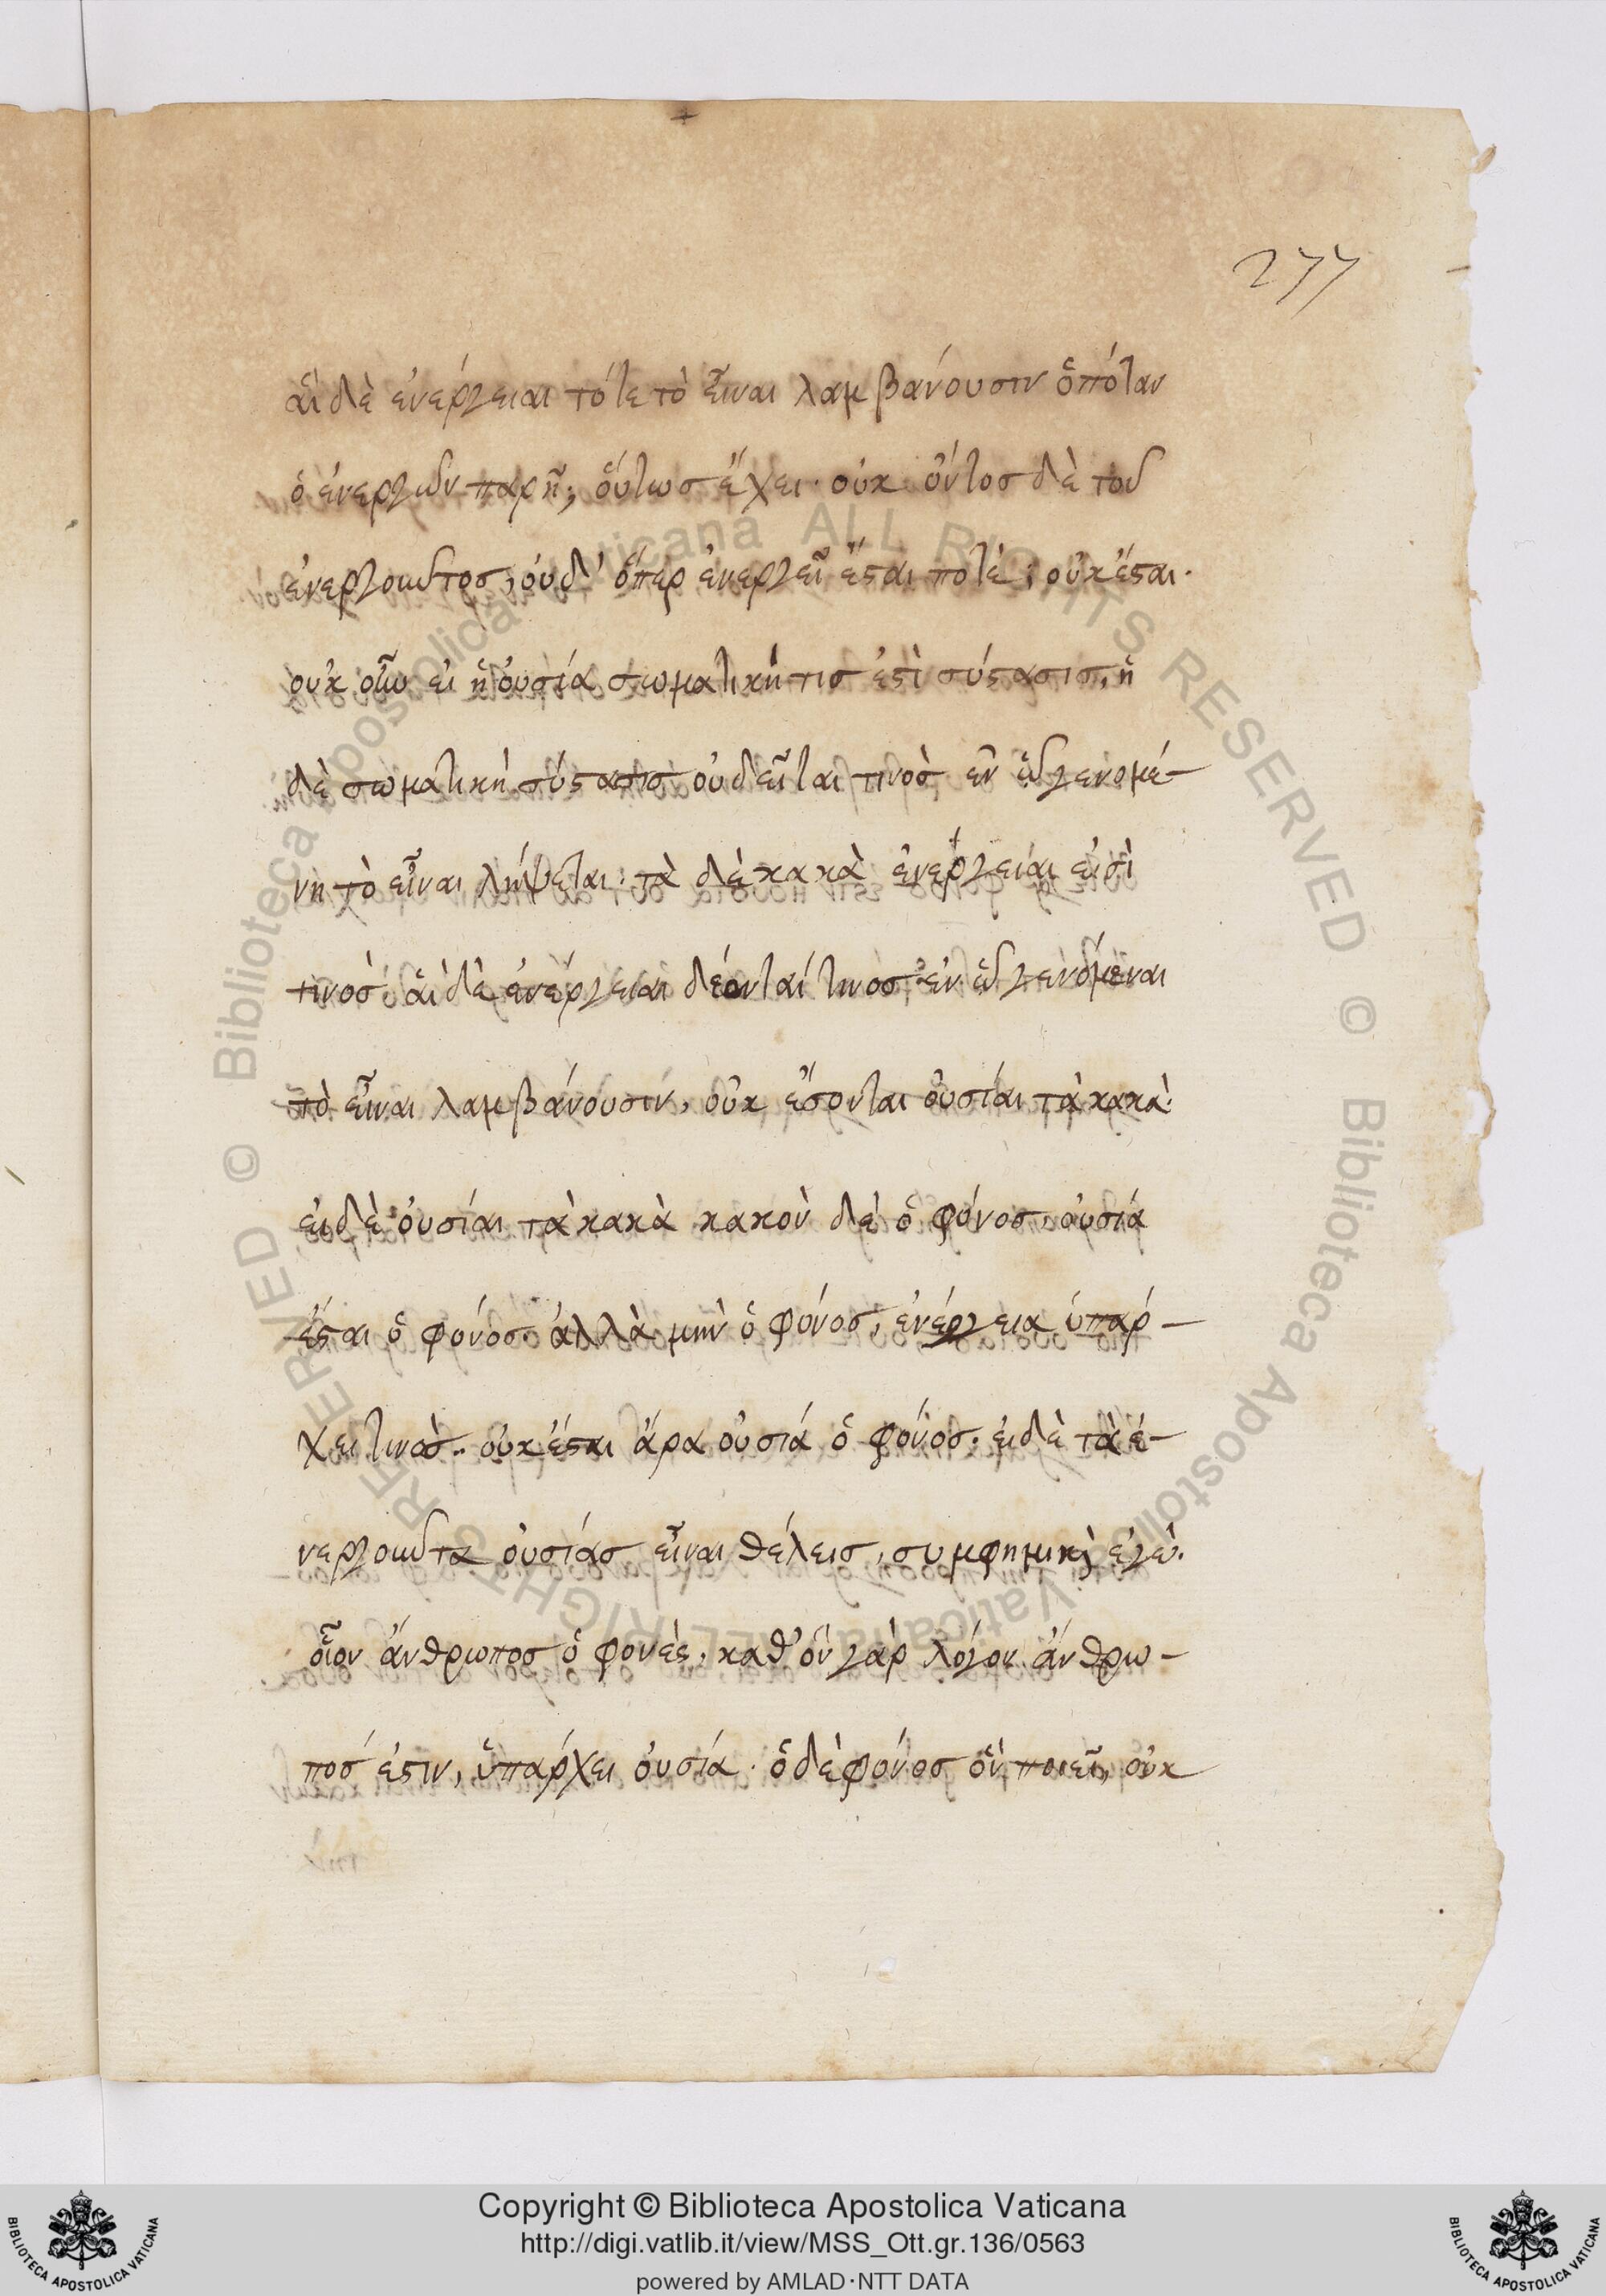 277
αἱ δὲ ἐνέργειαι τότε τὸ εἶναι λαμβάνουσιν ὁπόταν
ὁ ἐνεργῶν παρῆ; οὕτωσ ἔχει· οὐκ ὄντοσ δὲ τοῦ
ἐνεργοῦντοσ, οὐδ' ὅπερ ἐνεργεῖ ἔσται ποτὲ; οὐκ ἔσται·
οὐκ οὖν εἰ ἡ οὐσία σωματική τισ ἐστὶ σύστασισ, ἡ
δὲ σωματικὴ σύστασισ οὐ δεῖται τινοσ ἐν ὧ γενομέ-
νη τὸ εἶναι λήψεται· τὰ δὲ κακὰ ἐνέργειαι εἰσὶ
τινοσ αἱ δὲ ἐνέργειαι δέονταί τινοσ ἐν ὧ γενόμεναι
τὸ εἶναι λαμβάνουσιν, οὐκ ἔσονται οὐσίαι τὰ κακὰ·
εἰ δὲ οὐσίαι τὰ κακὰ κακὸν δὲ ὁ φόνοσ, οὐσία
ἔσται ὁ φόνοσ· ἀλλὰ μὴν ὁ φόνοσ, ἐνέργεια ὑπάρ-
χει τινοσ· οὐκ ἔσται ἄρα οὐσία ὁ φόνοσ· εἰ δὲ τὰ ἐ-
νεργοῦντα οὐσίασ εἶναι θέλεισ, σύμφημι καὶ ἐγὼ·
οἷον ἄνθρωποσ ὁ φονεὺς, καθ' ὃν γὰρ λόγον ἄνθρω-
ποσ ἐστιν, ὑπάρχει οὐσία· ὁ δὲ φόνοσ ὃν ποιεῖ, οὐκ
© Biblioteca Apostolica Vaticana ALL RIGHTS RESERVED © Biblioteca Apostolica Vaticana ALL RIGHTS RESERVED
BIBLIOTECA APOSTOLICA VATICANA
Copyright © Biblioteca Apostolica Vaticana
http://digi.vatlib.it/view/MSS_Ott.gr.136/0563
powered by AMLAD·NTT DATA
BIBLIOTECA APOSTOLICA VATICANA